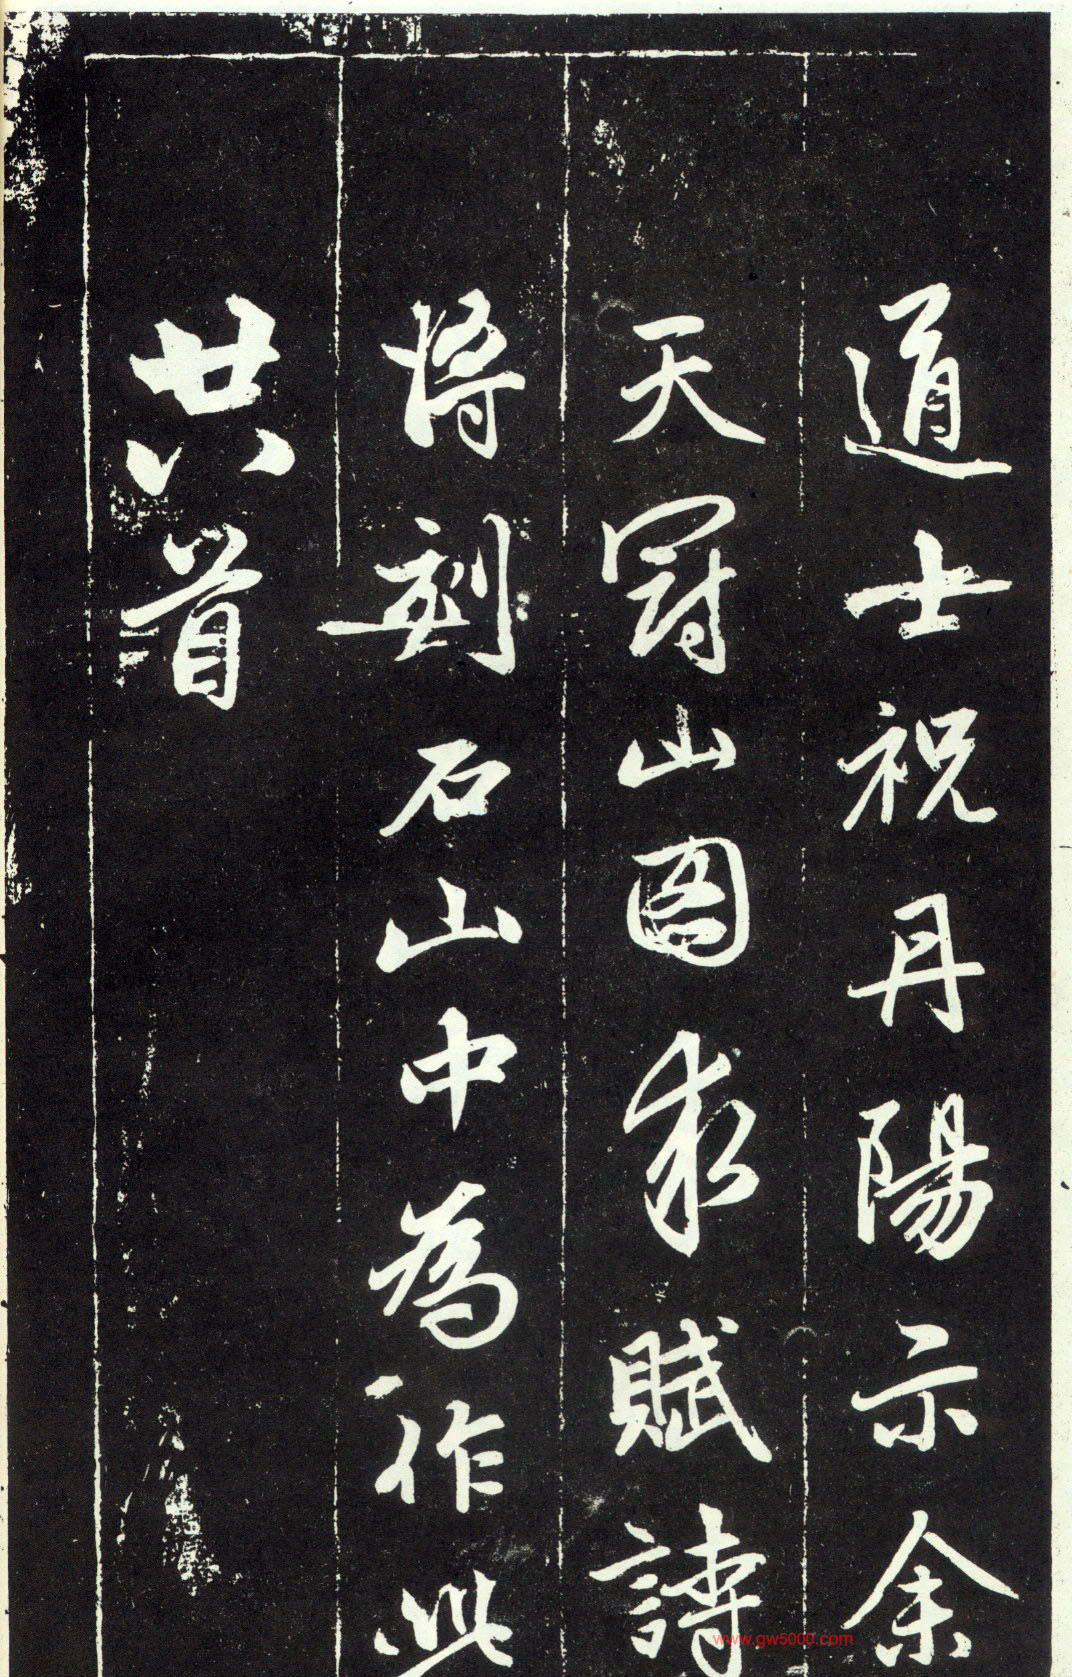 道士祝丹陽示余
天冠山圖求賦詩
將刻石山中為作此
廿八首
www.gw5000.com